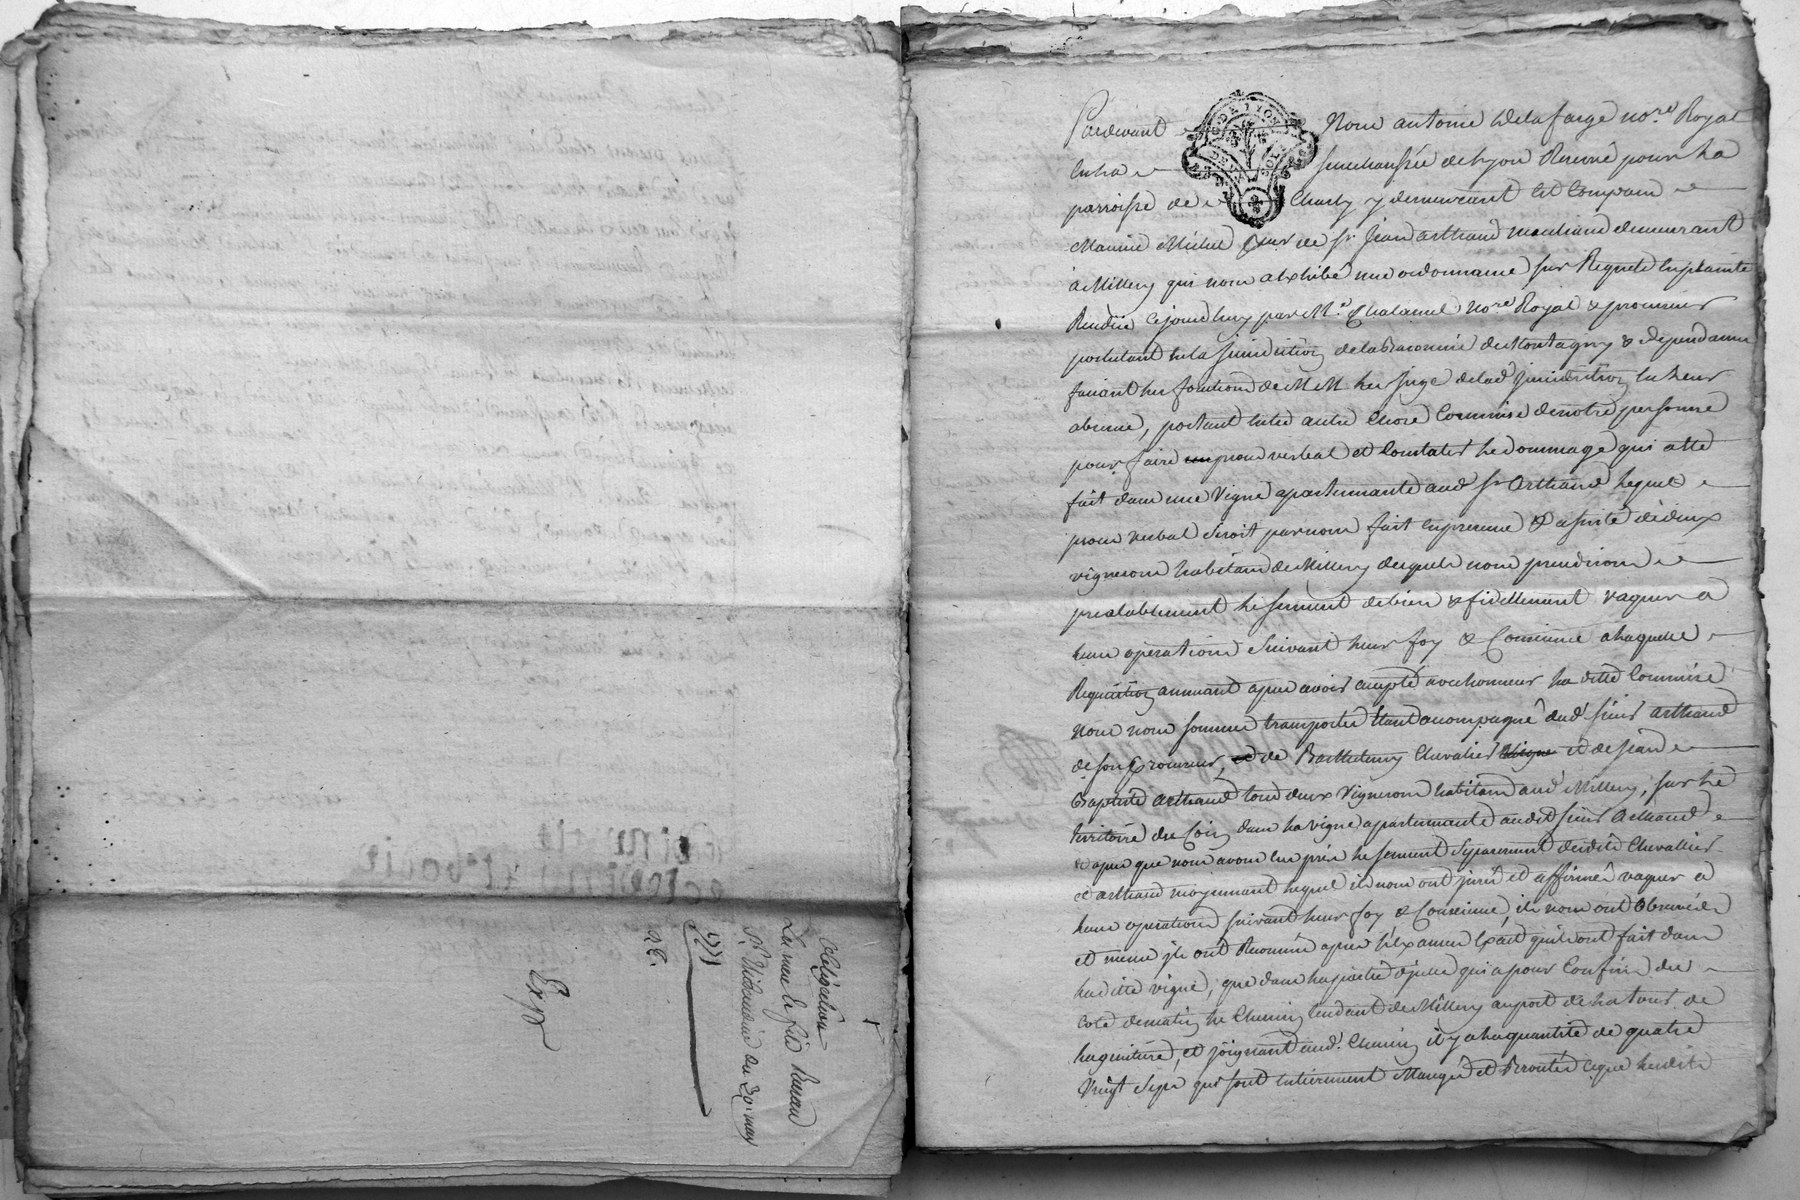 Obligation
La veuve le fils Pascal
Sr. Thibaudier du 20. may
1771
Exp
Pardevant Nous antoine Delafarge nore Royal
En la senechaussée de Lyon Reservé pour La
parroisse de Charly y demeurant Est Comparu
Maurice Michel Procr de sr Jean arthaud marchand demeurant
à Millery qui nous a Exhibé une ordonnance sur Requete En plainte
Rendüe Cejourdhuy par Me Chalamel Nore Royal & procureur
postulant En la jurisdiction de la Baronnie de Montagny & dependances
faisant Les fonctions de MM Les juge de lad jurisdiction En Leurs
absence, portant Entre autre Chose Commise de notre personne
pour faire proces verbal et Constater Le dommage qui a Eté
fait dans une Vigne apartenante aud sr Arthaud Lequel
proces verbal seroit par nous fait En presence & assisté de deux
vignerons habitans de Millery desquels nous prendrions
prealablement Le serment de bien & fidellement vaquer a
Leurs operations suivant Leurs foy & Conscience a Laquelle
Requisition annuant apres avoir accepté avec honneur La ditte Commise
Nous nous sommes transportés Etant acompagné dud sieur Arthaud
de son Procureur, de Barthelemy Chevalier et de jean
Baptiste Arthaud tous deux Vignerons habitans aud Millery, sur Le
territoire du Coin dans La vigne apartenante audit sieur Arthaud
& apres que nous avons En pris Le serment separement desdits Chevallier
& arthaud moyennant Lequel ils nous ont juré et affirmé vaquer a
Leurs operations suivant Leurs foy & Conscience, ils nous ont Observés
et meme ils ont Reconnu apres L'Examen Exact quils ont fait dans
Laditte vigne, que dans La partie d'jcelle qui a pour Confin du
Coté de matin Le Chemin tendant de Millery au port de La tour de
La guittiere, et joignant aud. Chemin il y a La quantité de quatre
Vingt Seps qui sont Entierement Mangés et Broutés Ce que Lesdits